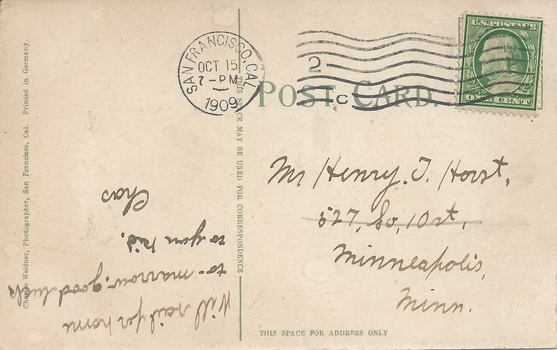 SAN FRANCISCO, CAL.
OCT 15
7-PM
1909
2
C
U.S. POSTAGE
ONE CENT
POST CARD.
Mr Henry. T. Horst,
527, So, 10 st,
Minneapolis,
Minn.
THIS SPACE FOR ADDRESS ONLY
THIS SPACE MAY BE USED FOR CORRESPONDENCE
Will sail for home
to-marrow, good luck
to you kid.
Chas
Charles Weidner, Photographer, San Francisco, Cal. Printed in Germany.